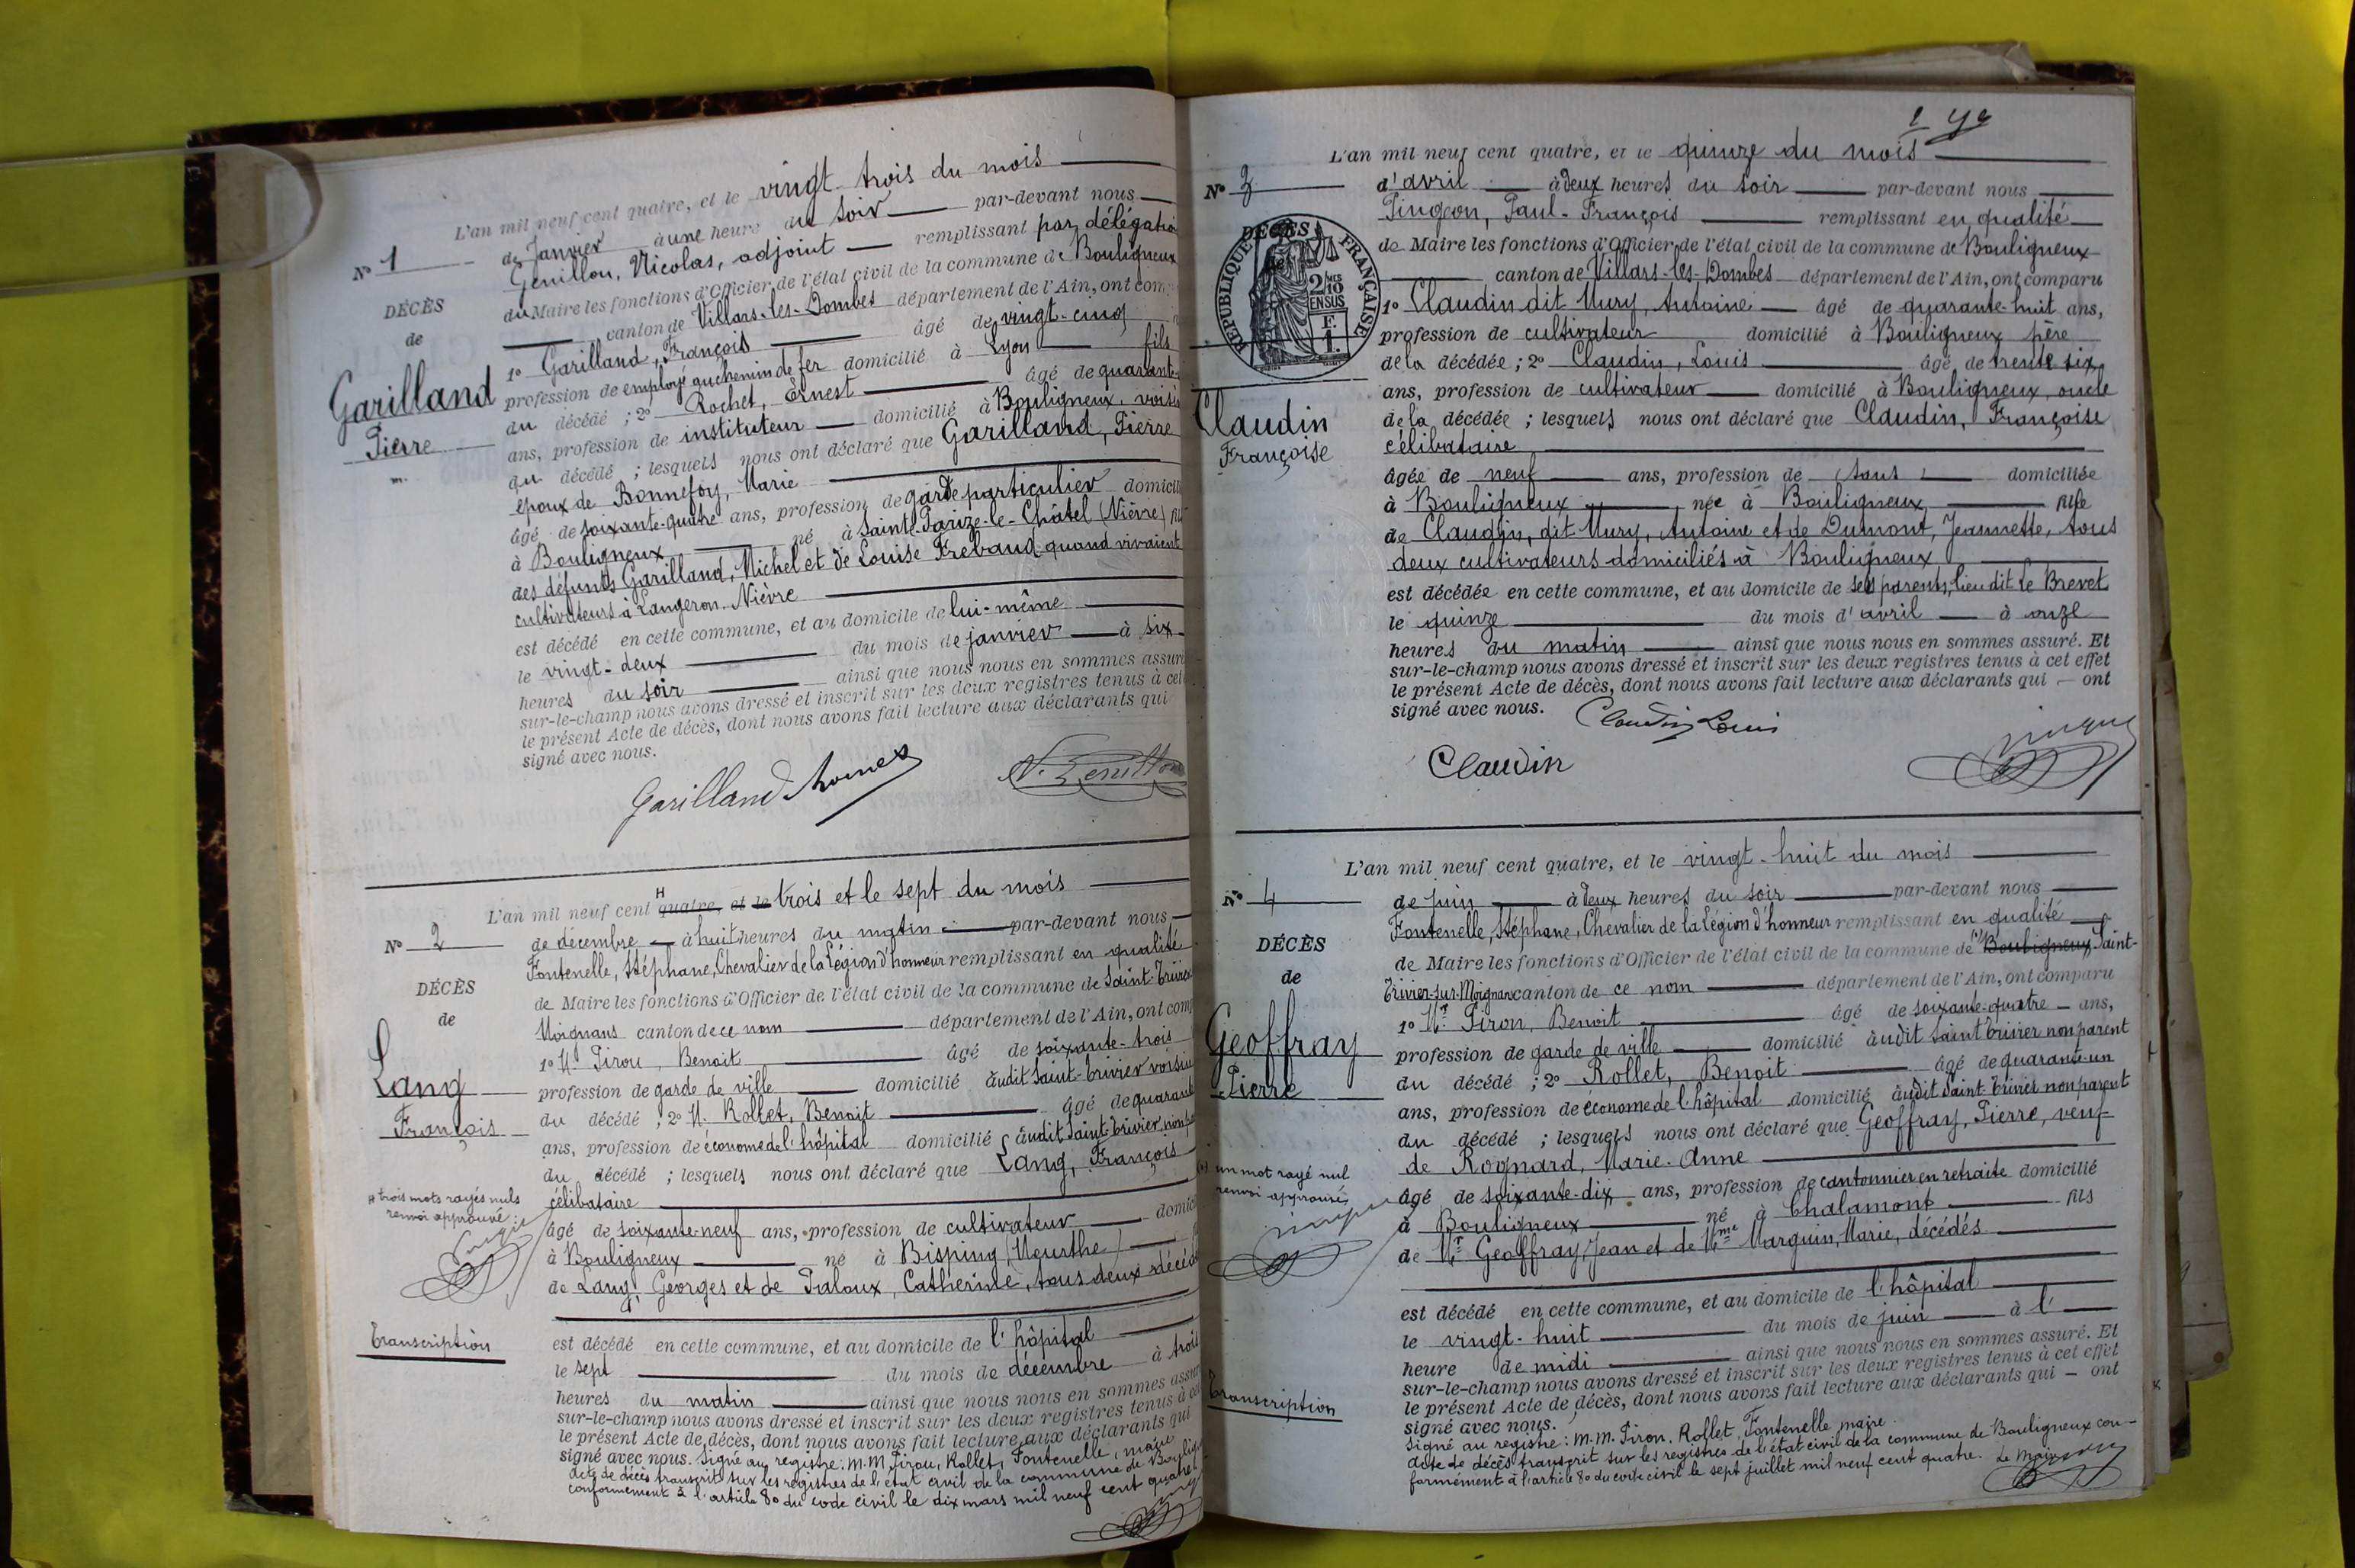 L'an mil neuf cent quatre, et le vingt-trois du mois
N° 1
de Janvier à une heure du soir par-devant nous
Genillon, Nicolas, adjoint remplissant par délégation
du Maire les fonctions d'Officier de l'état civil de la commune de Bouligneux
canton de Villars-les-Dombes département de l'Ain, ont com
DÉCÈS
de
Garilland
Pierre
1° Garilland, François âgé de vingt-cinq
profession de employé au chemin de fer domicilié à Lyon fils
du décédé ; 2° Rochet, Ernest âgé de quarante
ans, profession de instituteur domicilié à Bouligneux, voisin
du décédé ; lesquels nous ont déclaré que Garilland, Pierre
époux de Bonnefoy, Marie
âgé de soixante-quatre ans, profession de garde particulier domicil
à Bouligneux né à Saint-Parize-le-Châtel (Nièvre) fils
des défunts Garilland, Michel et de Louise Frebaud quand vivaient
cultivateurs à Langeron Nièvre
est décédé en cette commune, et au domicile de lui-même
le vingt-deux du mois de janvier à six
heures du soir ainsi que nous nous en sommes assuré
sur-le-champ nous avons dressé et inscrit sur les deux registres tenus à cet
le présent Acte de décès, dont nous avons fait lecture aux déclarants qui
signé avec nous.
Garilland
N. Genillon
L'an mil neuf cent quatre, et le trois et le sept du mois
N° 2
de décembre à huit heures du matin par-devant nous
Fontenelle, Stéphane, Chevalier de la Légion d'honneur remplissant en qualité
de Maire les fonctions d'Officier de l'état civil de la commune de Saint-Trivier
Moignans canton de ce nom département de l'Ain, ont comp
DÉCÈS
de
Lang
François
1° M. Pirou, Benoit âgé de soixante-trois
profession de garde de ville domicilié audit Saint-Trivier voisin
du décédé ; 2° M. Rollet, Benoit âgé de quarante
ans, profession de économe de l'hôpital domicilié audit Saint-Trivier non pa
du décédé ; lesquels nous ont déclaré que Lang, François
célibataire
trois mots rayés nuls
renvoi approuvé
âgé de soixante-neuf ans, profession de cultivateur domic
à Bouligneux né à Bisping (Meurthe)
de Lang, Georges et de Paloux, Catherine, tous deux décéd
Transcription
est décédé en cette commune, et au domicile de l'hôpital
le sept du mois de décembre à trois
heures du matin ainsi que nous nous en sommes assu
sur-le-champ nous avons dressé et inscrit sur les deux registres tenus à ce
le présent Acte de décès, dont nous avons fait lecture aux déclarants qui
signé avec nous. Signé au registre : M.M Pirou, Rollet, Fontenelle, maire
Acte de décès transcrit sur les registres de l'état civil de la commune de Boulign
conformément à l'article 80 du code civil le dix mars mil neuf cent quatre.
L'an mil neuf cent quatre, et le quinze du mois
N° 3
d'avril à deux heures du soir par-devant nous
Pingeon, Paul-François remplissant en qualité
de Maire les fonctions d'Officier de l'état civil de la commune de Bouligneux
canton de Villars-les-Dombes département de l'Ain, ont comparu
DÉCÈS
de
RÉPUBLIQUE FRANÇAISE
2/10
EN SUS
Claudin
Françoise
1° Claudin dit Mury, Antoine âgé de quarante-huit ans,
profession de cultivateur domicilié à Bouligneux père
de la décédée ; 2° Claudin, Louis âgé de trente six
ans, profession de cultivateur domicilié à Bouligneux, oncle
de la décédée ; lesquels nous ont déclaré que Claudin, Françoise
célibataire
âgée de neuf ans, profession de sans domiciliée
à Bouligneux née à Bouligneux fille
de Claudin, dit Mury, Antoine et de Dumont, Jeannette, tous
deux cultivateurs domiciliés à Bouligneux
est décédée en cette commune, et au domicile de ses parents, lieu dit Le Brevet
le quinze du mois d'avril à onze
heures du matin ainsi que nous nous en sommes assuré. Et
sur-le-champ nous avons dressé et inscrit sur les deux registres tenus à cet effet
le présent Acte de décès, dont nous avons fait lecture aux déclarants qui ont
signé avec nous.
Claudin Louis
Claudin
L'an mil neuf cent quatre, et le vingt-huit du mois
N° 4
de juin à deux heures du soir par-devant nous
Fontenelle, Stéphane, Chevalier de la Légion d'honneur remplissant en qualité
de Maire les fonctions d'Officier de l'état civil de la commune de Bouligneux Saint-
Trivier-sur-Moignans canton de ce nom département de l'Ain, ont comparu
DÉCÈS
de
Geoffray
Pierre
1° Mr. Piron, Benoit âgé de soixante-quatre ans,
profession de garde de ville domicilié audit Saint Trivier non parent
du décédé ; 2° Rollet, Benoit âgé de quarante-un
ans, profession de économe de l'hôpital domicilié audit Saint-Trivier non parent
du décédé ; lesquels nous ont déclaré que Geoffray, Pierre, veuf
de Rognard, Marie-Anne
un mot rayé nul
renvoi approuvé
âgé de soixante-dix ans, profession de cantonnier en retraite domicilié
à Bouligneux né à Chalamont fils
de Mr Geoffray, Jean et de Mme Marguin, Marie, décédés
est décédé en cette commune, et au domicile de l'hôpital
le vingt-huit du mois de juin à l'
heure de midi ainsi que nous nous en sommes assuré. Et
sur-le-champ nous avons dressé et inscrit sur les deux registres tenus à cet effet
Transcription
le présent Acte de décès, dont nous avons fait lecture aux déclarants qui ont
signé avec nous.
Signé au registre : M.M. Piron, Rollet, Fontenelle maire.
Acte de décès transcrit sur les registres de l'état civil de la commune de Bouligneux con-
formément à l'article 80 du code civil le sept juillet mil neuf cent quatre. Le Maire